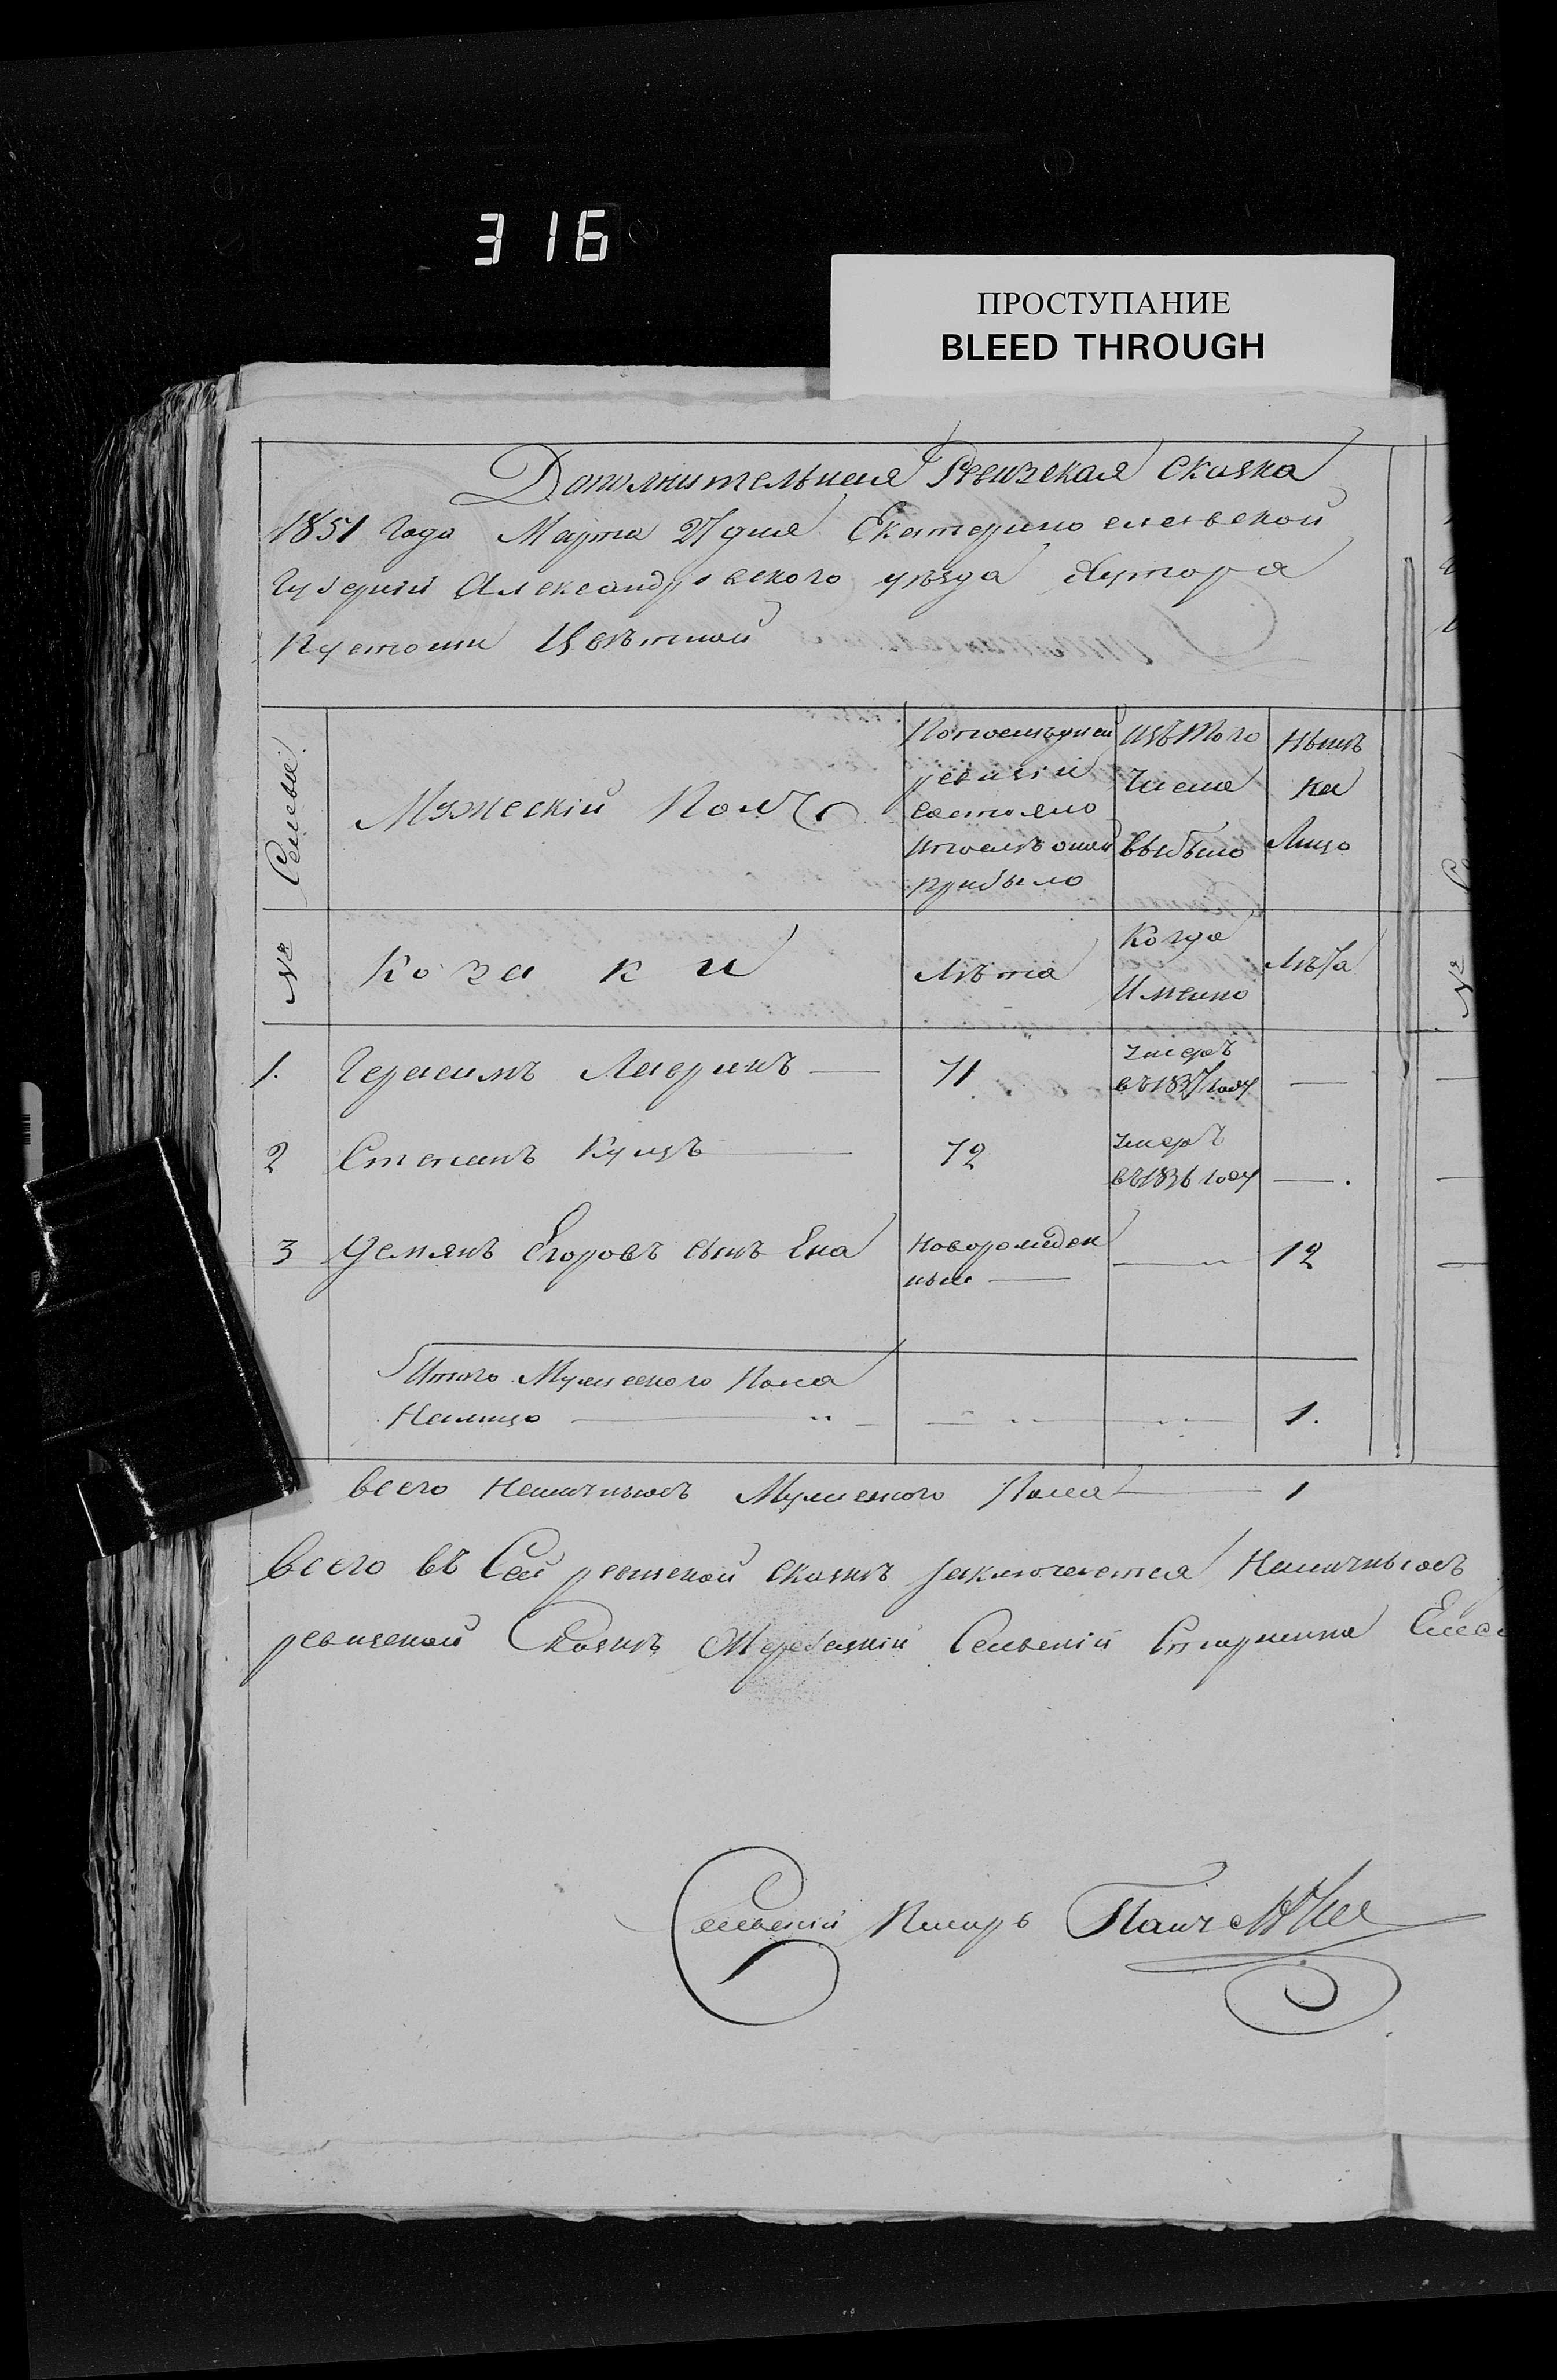 316
ПРОСТУПАНИЕ
BLEED THROUGH
Дополнительная Ревизская Сказка
1851 Года Марта 27 дня Екатеринославской
Губернии Александровского уѣзда Хутора
Пустоши Цвѣтной
Семьи
Мужескій Полъ
По послѣдней ревизіи состояло и послѣ оной прибыло
Изъ того числа выбыло
Нынѣ на Лицо
№
Козаки
Лѣта
Когда Именно
Лѣта
1. Герасимъ Лавринъ — 71 умеръ въ 1837 году —
2 Степанъ Куцъ — 72 умеръ въ 1836 году —
3 Демянъ Егоровъ сынъ Ена новорожден ный — — 12
Итого Мужеского Пола
Налицо — 1.
всего Наличныхъ Мужеского Пола — 1
всего въ Сей ревизской сказкѣ заключается Наличныхъ
ревизской Сказкѣ Сельскій Старшина
Сельскій Писарь